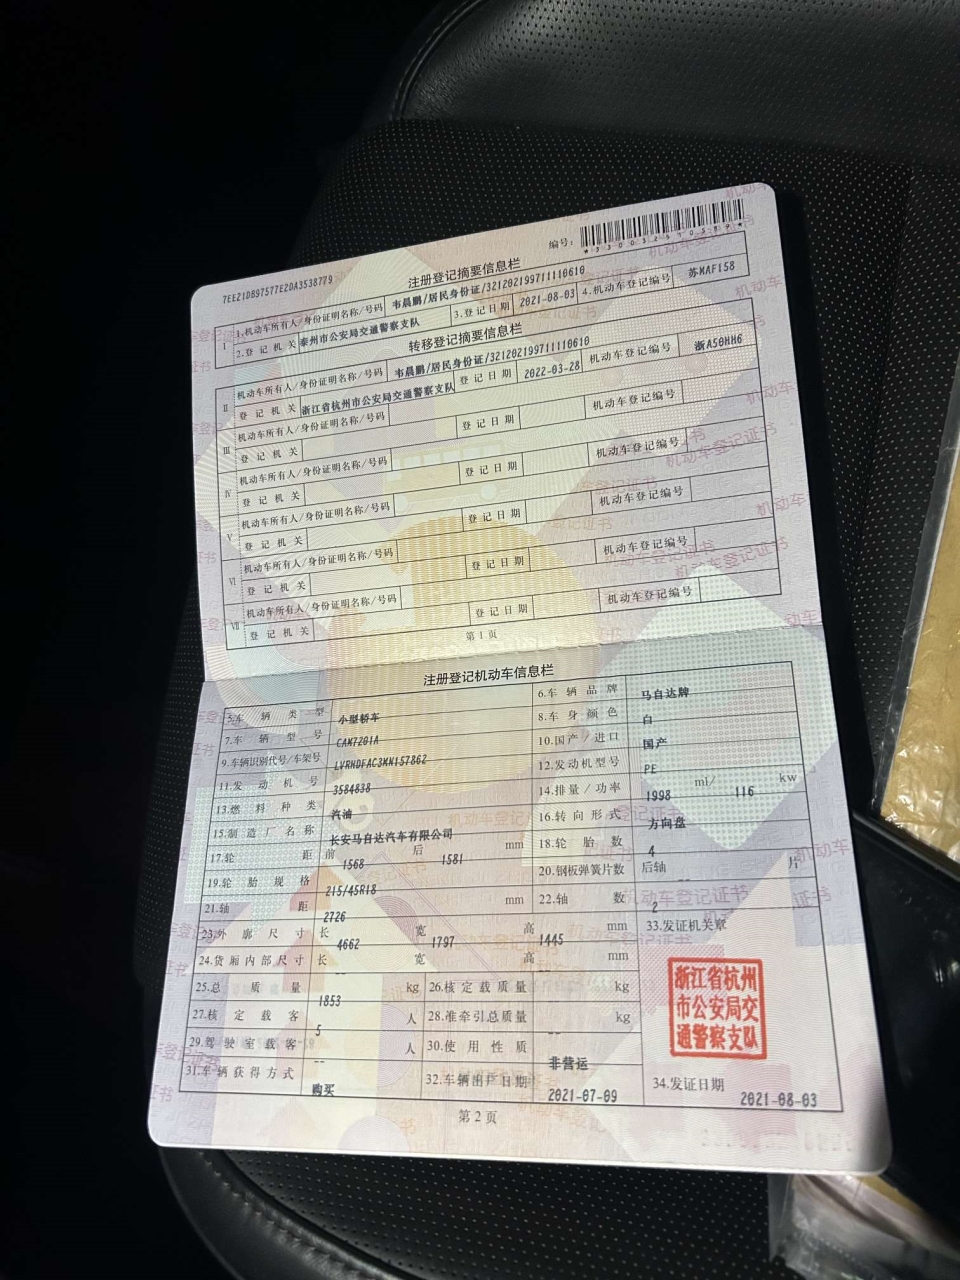 编号:
*330032570589*
7EE21DB97577E2DA3538779
注册登记摘要信息栏
Ⅰ 1.机动车所有人/身份证明名称/号码 韦晨鹏/居民身份证/321202199711110610
2.登记机关 泰州市公安局交通警察支队 3.登记日期 2021-08-03 4.机动车登记编号 苏MAF158
转移登记摘要信息栏
Ⅱ 机动车所有人/身份证明名称/号码 韦晨鹏/居民身份证/321202199711110610
登记机关 浙江省杭州市公安局交通警察支队 登记日期 2022-03-28 机动车登记编号 浙A50HH6
Ⅲ 机动车所有人/身份证明名称/号码
登记机关 登记日期 机动车登记编号
Ⅳ 机动车所有人/身份证明名称/号码
登记机关 登记日期 机动车登记编号
Ⅴ 机动车所有人/身份证明名称/号码
登记机关 登记日期 机动车登记编号
Ⅵ 机动车所有人/身份证明名称/号码
登记机关 登记日期 机动车登记编号
Ⅶ 机动车所有人/身份证明名称/号码
登记机关 登记日期 机动车登记编号
第1页
注册登记机动车信息栏
5.车辆类型 小型轿车 6.车辆品牌 马自达牌
7.车辆型号 CAM7201A 8.车身颜色 白
9.车辆识别代号/车架号 LVRHDFAC3MN157862 10.国产/进口 国产
11.发动机号 3584838 12.发动机型号 PE
13.燃料种类 汽油 14.排量/功率 1998 ml/ 116 kw
15.制造厂名称 长安马自达汽车有限公司 16.转向形式 方向盘
17.轮距 前 1568 后 1581 mm 18.轮胎数 4
19.轮胎规格 215/45R18 20.钢板弹簧片数 后轴 -- 片
21.轴距 2726 mm 22.轴数 2
23.外廓尺寸 长 4662 宽 1797 高 1445 mm 33.发证机关章
24.货厢内部尺寸 长 -- 宽 高 mm
25.总质量 1853 kg 26.核定载质量 -- kg
27.核定载客 5 人 28.准牵引总质量 -- kg
29.驾驶室载客 -- 人 30.使用性质 非营运
31.车辆获得方式 购买 32.车辆出厂日期 2021-07-09 34.发证日期 2021-08-03
浙江省杭州
市公安局交
通警察支队
第2页